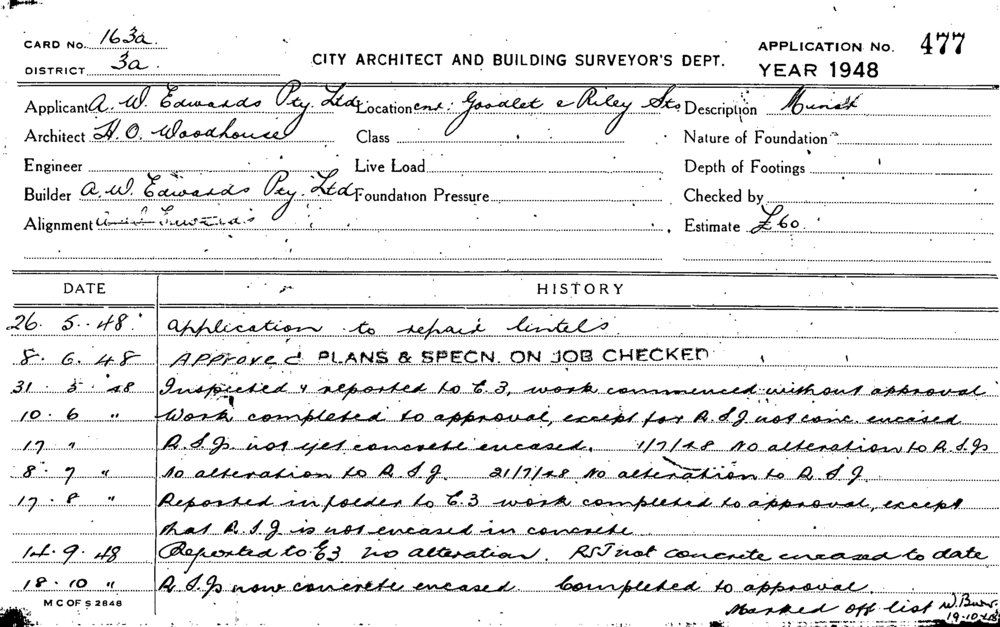 CARD No. 163a.
DISTRICT 3a.
CITY ARCHITECT AND BUILDING SURVEYOR'S DEPT.
APPLICATION No. 477
YEAR 1948
Applicant A. W. Edwards Pty. Ltd Location cnr: Goodlet & Riley Sts Description
Architect H. O. Woodhouse Class Nature of Foundation
Engineer Live Load Depth of Footings
Builder A. W. Edwards Pty. Ltd Foundation Pressure Checked by
Alignment Estimate £60.
DATE HISTORY
26. 5. 48. Application to repair lintels
8. 6. 48 Approved PLANS & SPECN. ON JOB CHECKED
31. 5. 48 Inspected & reported to E.3, work commenced without approval
10. 6 " Work completed to approval, except for R.S.J not conc. encased
17 " R.S.Js not yet concrete encased. 1/7/48 No alteration to R.S.Js
8. 7 " No alteration to R.S.J. 21/7/48 No alteration to R.S.J
17. 8 " Reported in folder to E.3 work completed to approval, except
that R.S.J is not encased in concrete
14. 9. 48 Reported to E3 no alteration. RSJ not concrete encased to date
18. 10 " R.S.Js now concrete encased. Completed to approval.
M C OF S 2848
Marked off list W.
19.10.48